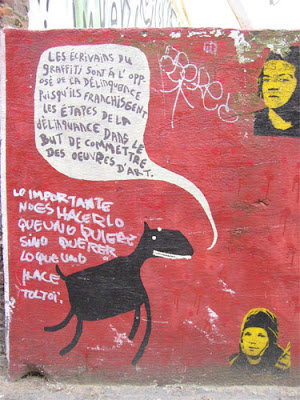 LES ÉCRIVAINS DU
GRAFFITI SONT À L'OPP
OSÉ DE LA DÉLINQUANCE
PUISQU'ILS FRANCHISSENT
LES ÉTAPES DE LA
DÉLINQUANCE DANS LE
BUT DE COMMETTRE
DES OEUVRES D'ART.
LO IMPORTANTE
NO ES HACER LO
QUE UNO QUIERE
SINO QUERER
LO QUE UNO
HACE
TOLTOI.